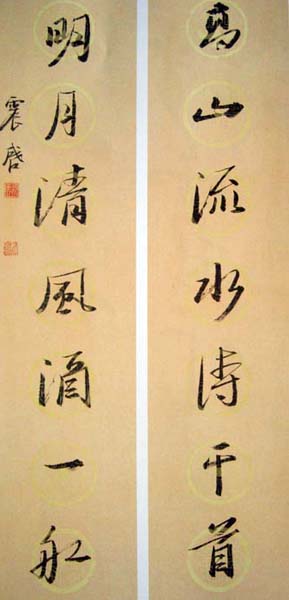 高山流水诗千首
明月清風酒一船
震启